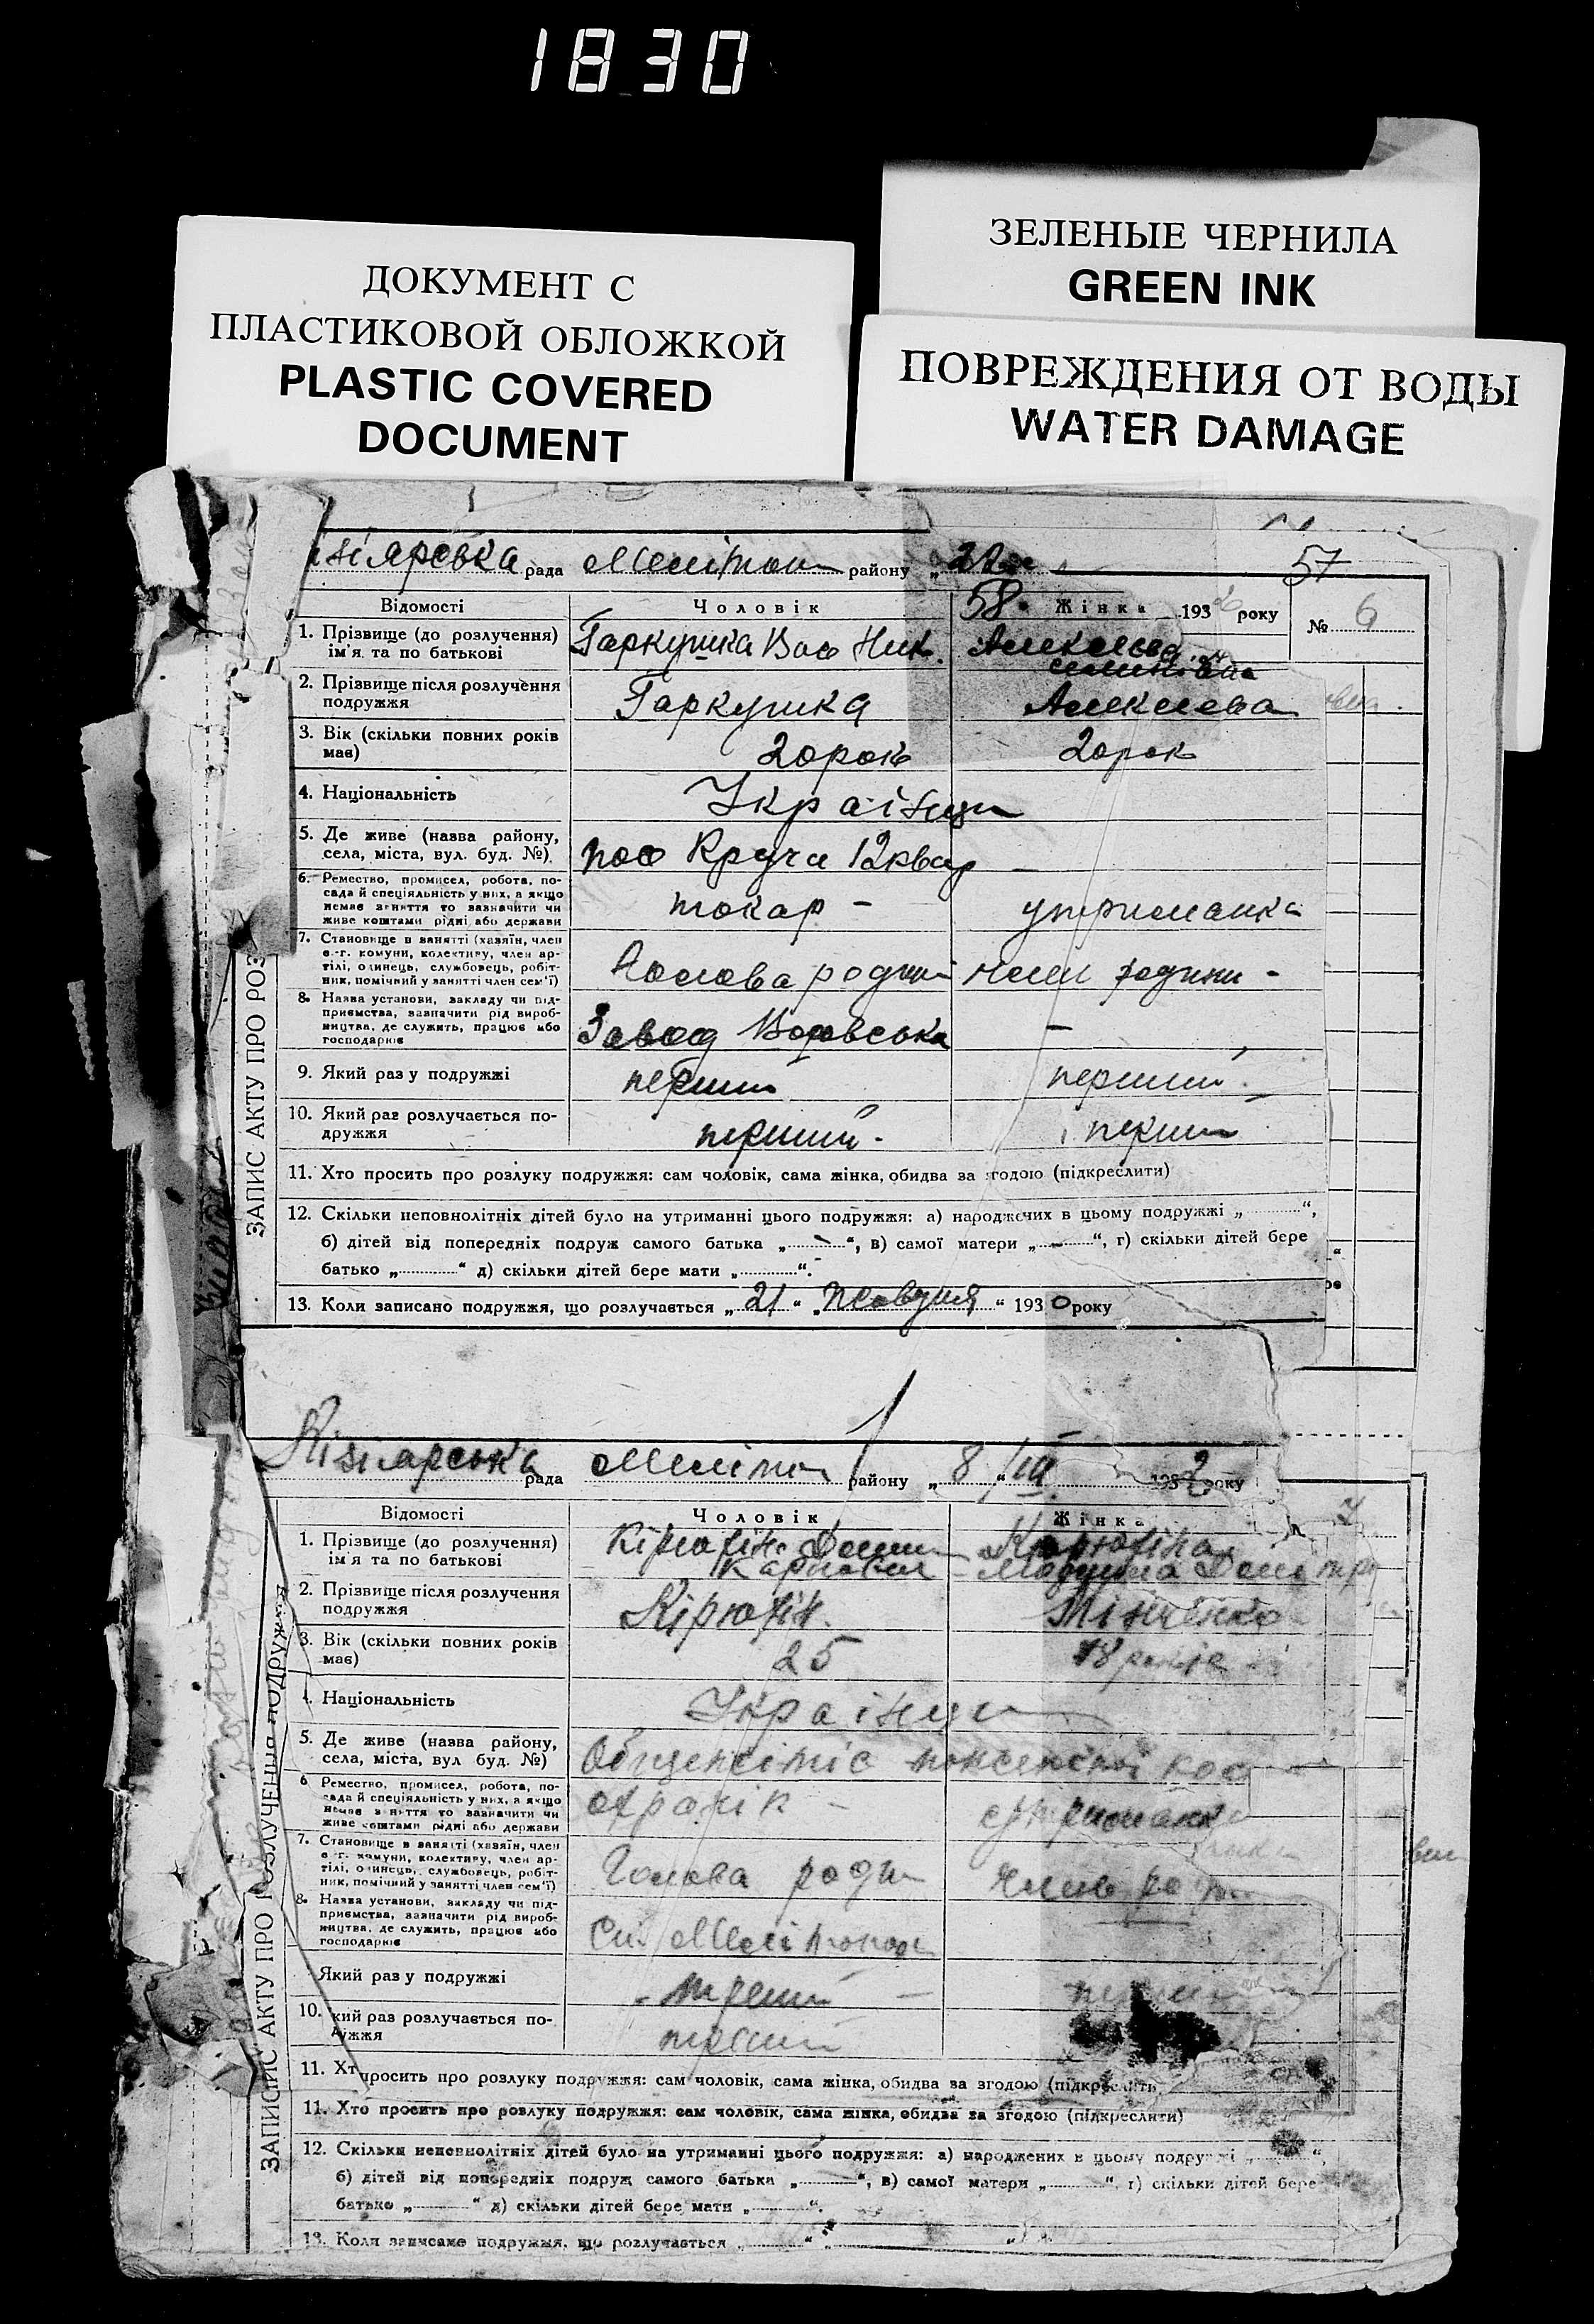 1830
ЗЕЛЕНЫЕ ЧЕРНИЛА
GREEN INK
ДОКУМЕНТ С
ПЛАСТИКОВОЙ ОБЛОЖКОЙ
PLASTIC COVERED
DOCUMENT
ПОВРЕЖДЕНИЯ ОТ ВОДЫ
WATER DAMAGE
57
рада Меліто району „22
Відомості Чоловік 58. Жінка 193 року № 6
1. Прізвище (до розлучення) ім'я та по батькові Гаркушка Вас Ник. Алексєєва
2. Прізвище після розлучення подружжя Гаркушка Алексеева
3. Вік (скільки повних років має) 20 рок 20 рок
4. Національність Українци
5. Де живе (назва району, села, міста, вул. буд. №) пос Круча 12 квар
6. Ремество, промисел, робота, посада й спеціяльність у них, а якщо немає заняття то зазначити чи живе коштами рідні або держави токар – утриманка
7. Становище в занятті (хазяїн, член с.-г. комуни, колективу, член артілі, одинець, службовець, робітник, помічний у занятті член сем'ї) Голова родини член родини -
8. Назва установи, закладу чи підприємства, зазначити рід виробництва, де служить, працює або господарює Завод –
9. Який раз у подружжі перший перший
10. Який раз розлучається подружжя перший. перший
ЗАПИС АКТУ ПРО РОЗ
11. Хто просить про розлуку подружжя: сам чоловік, сама жінка, обидва за згодою (підкреслити)
12. Скільки неповнолітніх дітей було на утриманні цього подружжя: а) народжених в цьому подружжі „ “,
б) дітей від попередніх подруж самого батька „ – “, в) самої матери „ – “, г) скільки дітей бере
батько „ “ д) скільки дітей бере мати „ “.
13. Коли записано подружжя, що розлучається „21“ „Жовтня“ 1930 року
Кізіярська рада Меліто району „8“ III 1932 року
Відомості Чоловік Жінка 7
1. Прізвище (до розлучення) ім'я та по батькові Кірюхін Карпович Кірюхіна
2. Прізвище після розлучення подружжя Кірюхін. Мінченко
3. Вік (скільки повних років має) 25 18 років
4. Національність Українци
5. Де живе (назва району, села, міста, вул буд. №) Общежитіе
6. Ремество, промисел, робота, посада й спеціяльність у них, а якщо немає заняття то зазначити чи живе коштами рідні або держави охранік – утриманка
7. Становище в занятті (хазяїн, член с.-г. комуни, колективу, член артілі, одинець, службовець, робітник, помічний у занятті член сем'ї) Голова роди член роди
8. Назва установи, закладу чи підприємства, зазначити рід виробництва, де служить, працює або господарює Ст. Мелітополь
Який раз у подружжі –
10. кий раз розлучається подружжя перший
ЗАПИС АКТУ ПРО РОЗЛУЧЕННЯ ПОДРУЖЖЯ
11. Хт просить про розлуку подружжя: сам чоловік, сама жінка, обидва за згодою (підкреслить
11. Хто просить про розлуку подружжя: сам чоловік, сама жінка, обидва за згодою (підкреслити)
12. Скільки неповнолітніх дітей було на утриманні цього подружжя: а) народжених в цьому подружжі „ “,
б) дітей від попередніх подруж самого батька „ “, в) самої матери „ “, г) скільки дітей бере
батько „ “ д) скільки дітей бере мати „ “.
13. Коли записано подружжя, що розлучається „ “